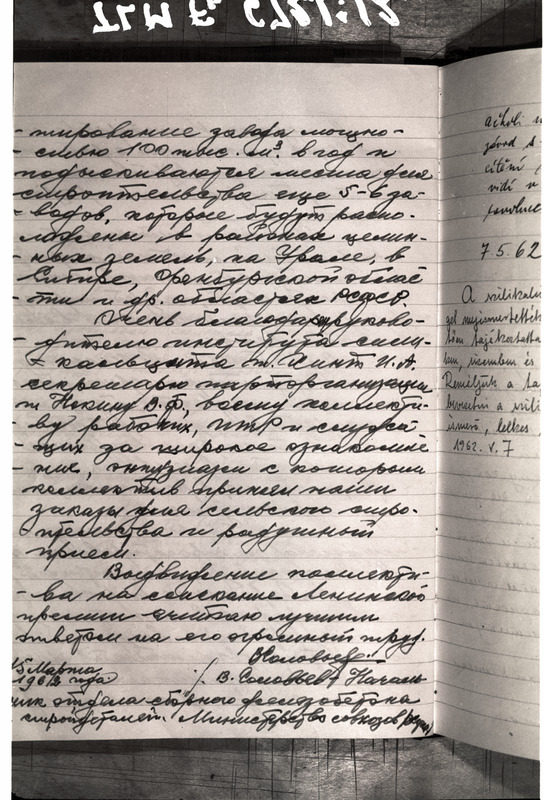 -тирование завода мощно-
-стью 100 тыс. м³ в год и
подыскиваются места для
строительства еще 5-6 за-
-водов, которые будут распо-
-ложены в районах целин-
-ных земель, на Урале, в
Сибири, Оренбургской облас
-ти и др. областях РСФСР.
Очень благодарю руково-
-дителю института сили-
-кальцита т. Хинт И.А.
секретарю парторганизации
т. В.Ф, всему коллекти-
ву рабочих, ИТР и служа
-щих за широкое ознакомле
-ние, энтузиазм с которым
коллектив принял наши
заказы для сельского стро-
-ительства и радушный
прием.
Выдвижение коллекти-
-ва на соискание Ленинской
премии считаю лучшим
ответом на его огромный труд.
Соловьев
15 Марта
1962 года
/. В. Соловьев / Началь
ник отдела сборного железобетона
Министерство совхозов
7.5.62
A
1962. V. 7